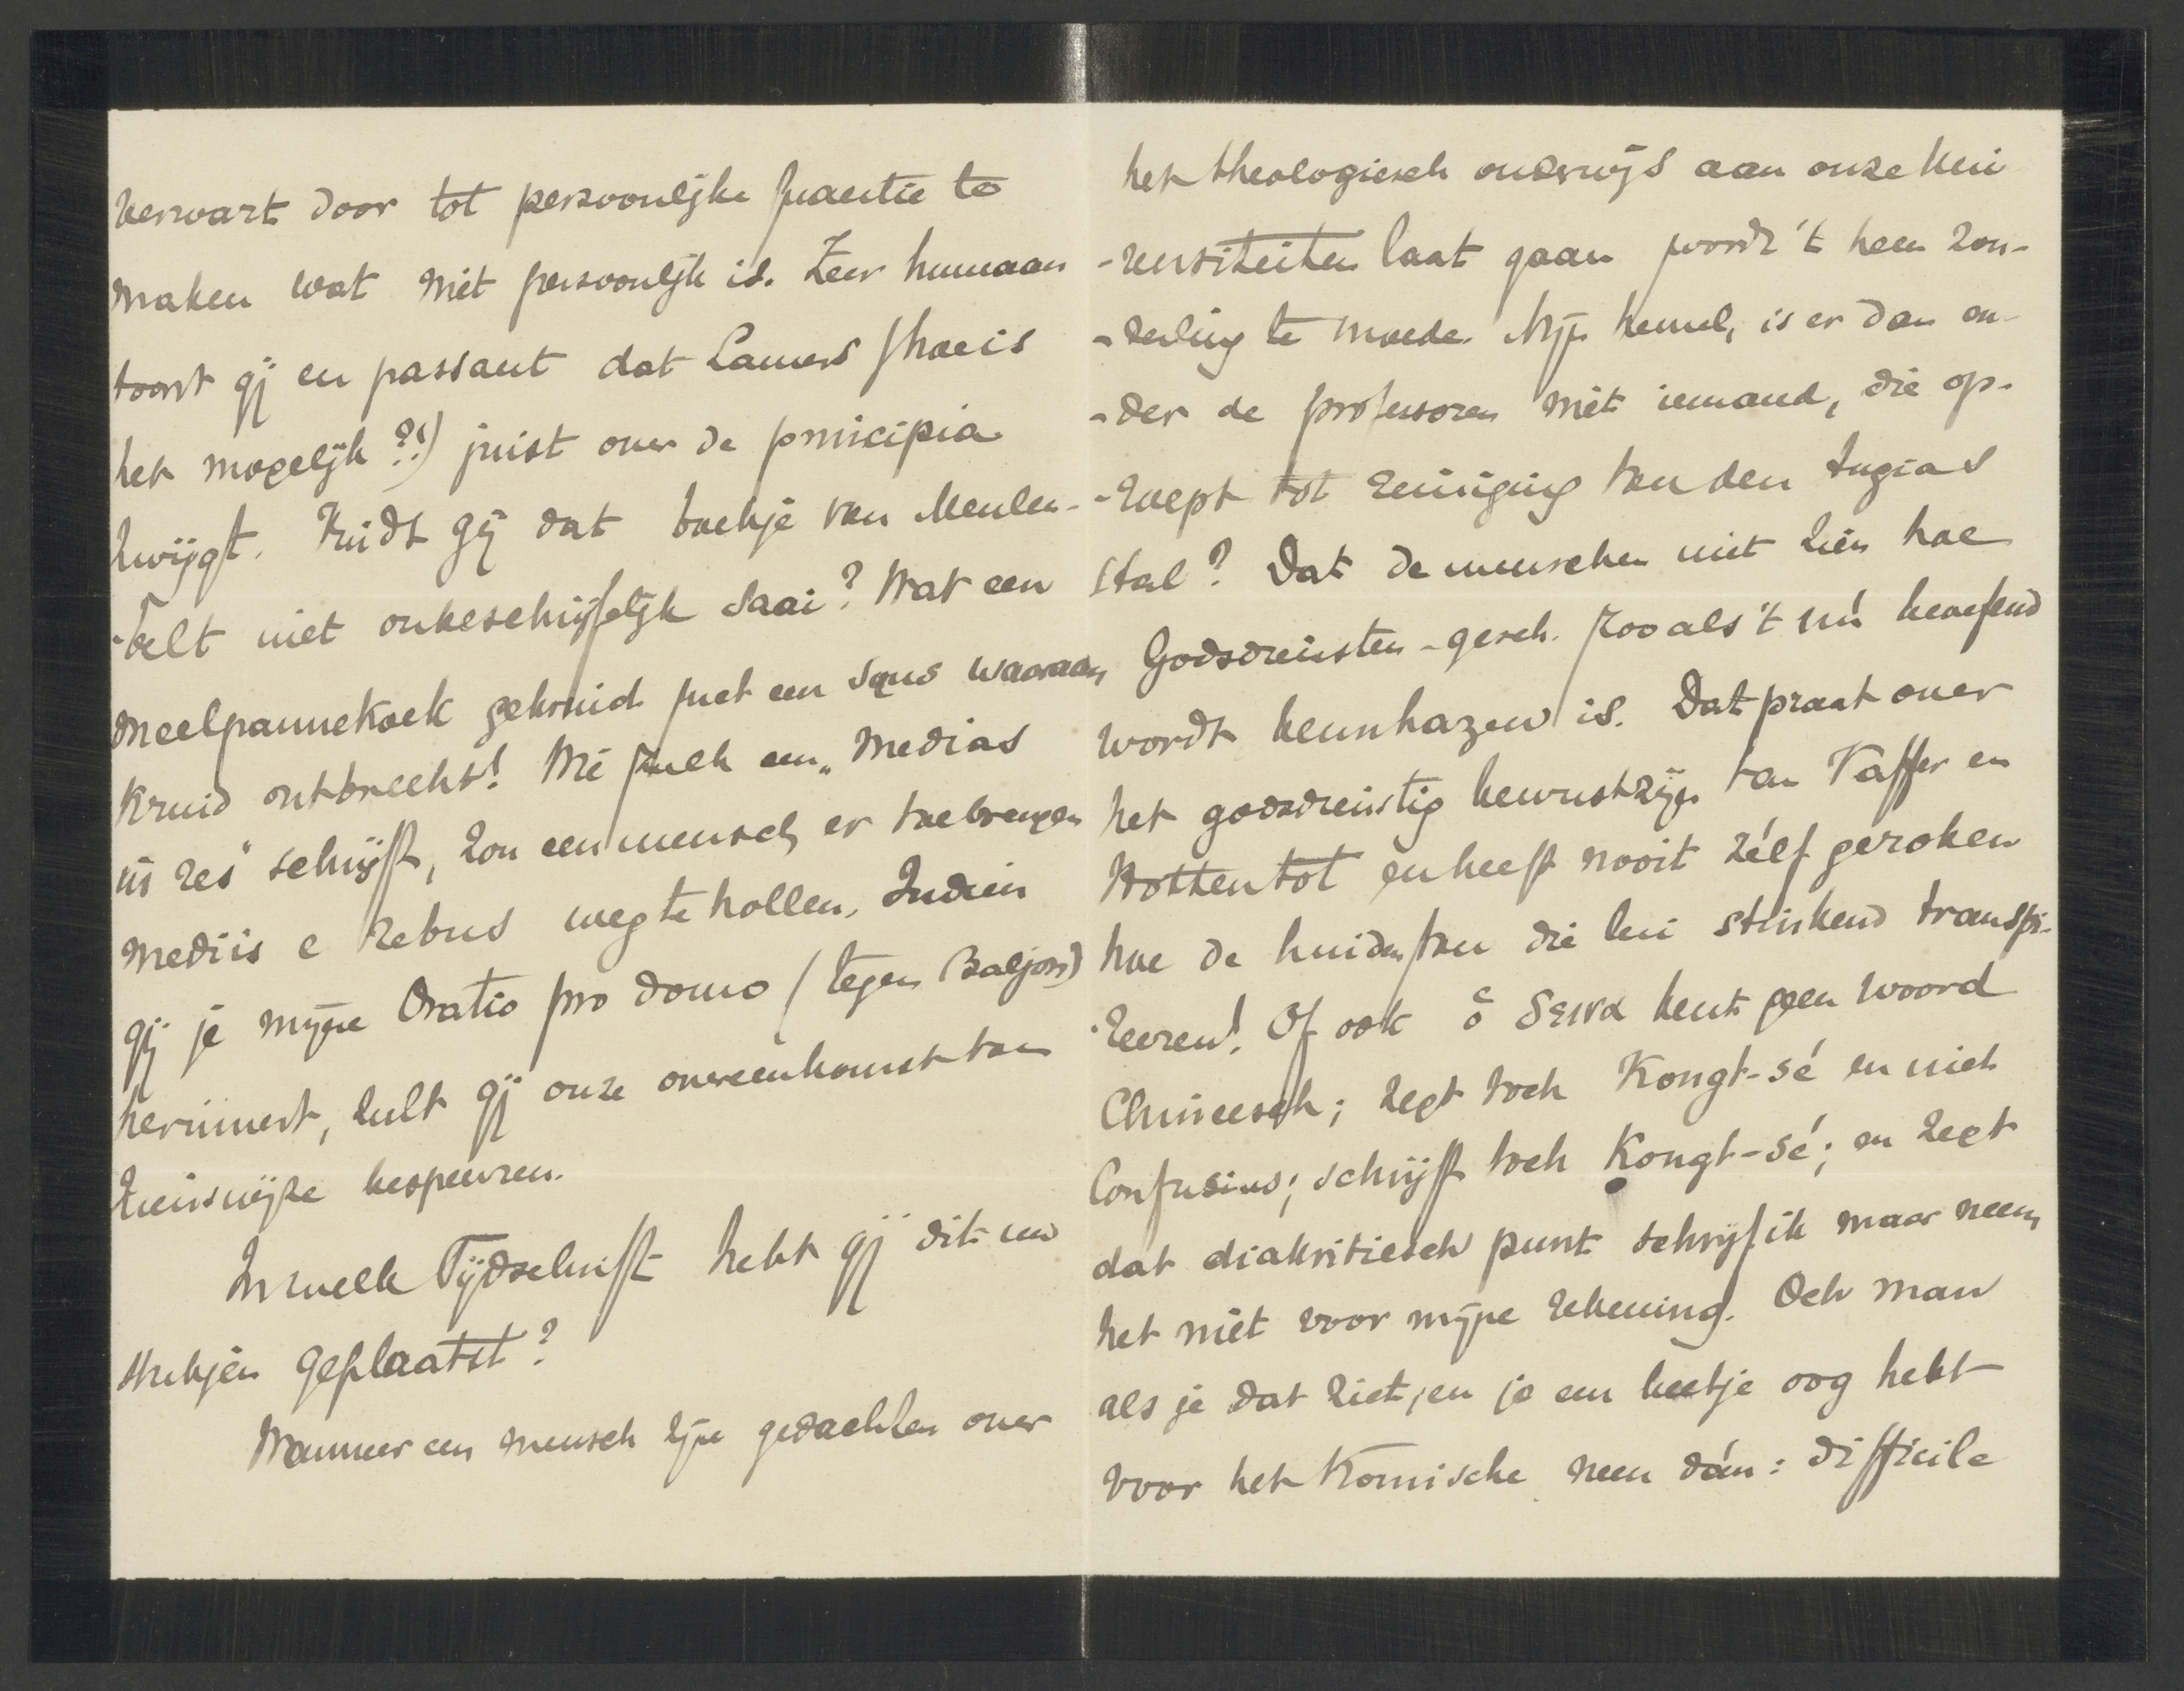 verwart door tot persoonlijke quaestie te
maken wat niet persoonlijk is. Zeer humaan
toont gij en passant dat Lamers (hoe is
het mogelijk?!) juist over de principia
zwijgt. Vindt gij dat boekje van Meulen-
-belt niet onbeschrijfelijk saai? Wat een
meelpannekoek gekruid met een saus waaraan
kruid ontbreekt! Me zulk een „medias
in res" schrijft, zou een mensch er toe brengen
mediis e rebus weg te hollen. Indien
gij je mijne Oratio pro domo (tegen Baljon)
herinnert, zult gij onze overeenkomst van
zienswijze bespeuren.
In welk Tijdschrift hebt gij dit uw
stukjen geplaatst?
Wanneer een mensch zijne gedachten over
het theologiesch onderwijs aan onze Uni
-versiteiten laat gaan wordt 't hem zon-
-derling te moede. Mijn hemel, is er dan on-
-der de professoren niet iemand, die op-
-roept tot reiniging van den Augias
stal? Dat de menschen niet zien hoe
Godsdiensten-gesch. zooals 't nú beoefend
wordt beunhazerij is. Dat praat over
het godsdienstig bewustzijn van Kaffer en
Hottentot en heeft nooit zélf geroken
hoe de huiden van die lui stinkend transpi-
-reeren! Of ook ὁ δεινα kent geen woord
Chineesch; zegt toch Kongt-sé en niet
Confusius; schrijft toch Kongt-sé; en zegt
dat diakritiesch punt schrijf ik maar neem
het niet voor mijne rekening. Och man
als je dat ziet, en je een beetje oog hebt
voor het komische neen dán: difficile